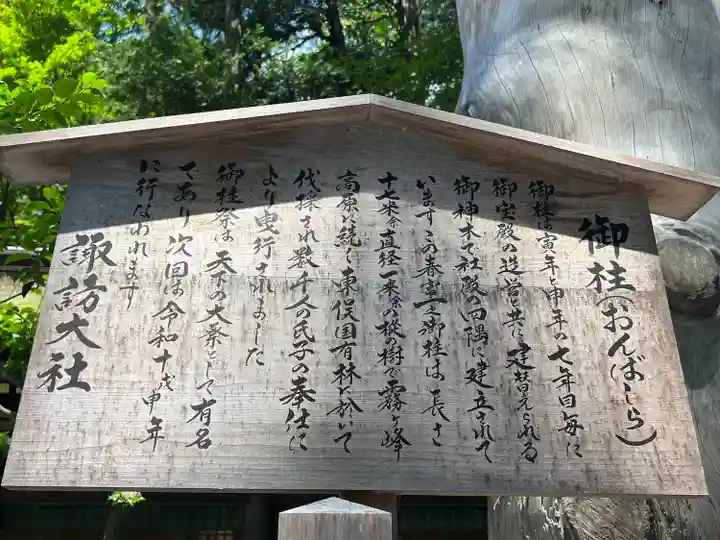 御柱(おんばしら)
御柱は寅年と申年の七年目毎に
御宝殿の造営と共に建替えられる
御神木で社殿の四隅に建立されて
います この春宮一之御柱は長さ
十七米余直径一米余の樅の樹で霧ヶ峰
高原の続く東俣国有林に於いて
伐採され数千人の氏子の奉仕に
より曳行されました
御柱祭は天下の大祭として有名
であり次回は令和十戊申年
に行なわれます
諏訪大社